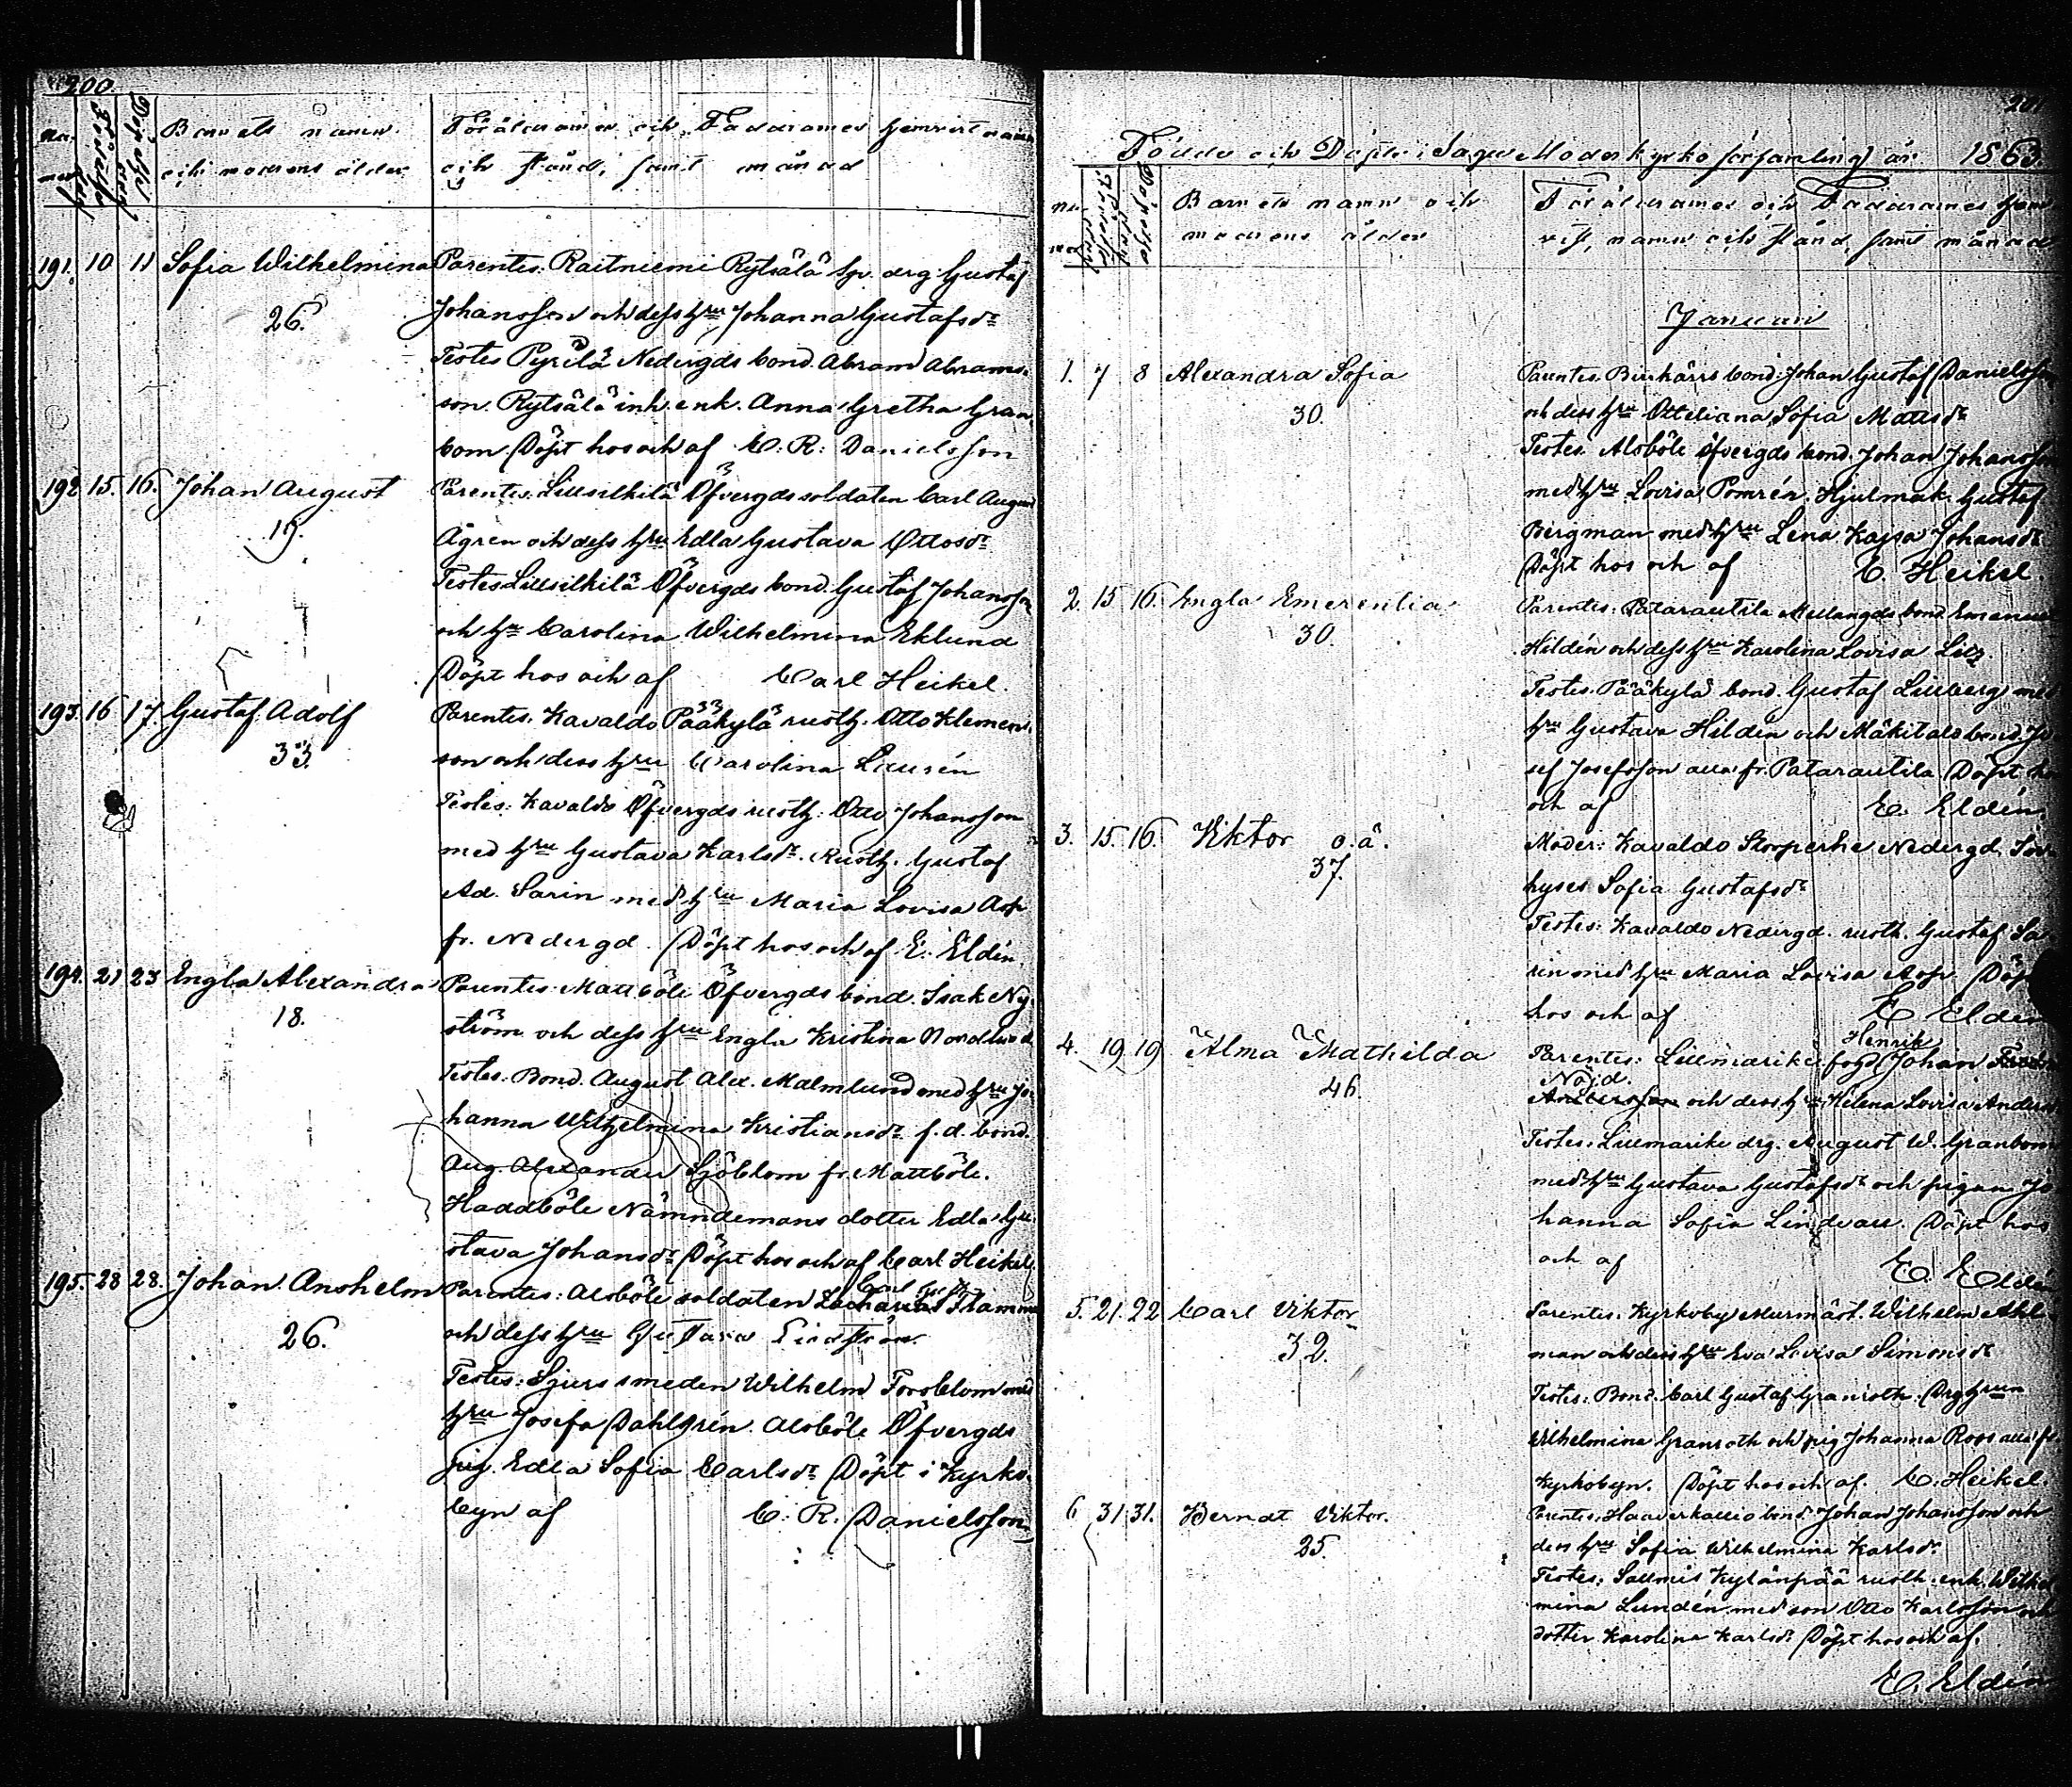 200
Barnets namn
och modrens ålder
Föräldrarnes och Faddrarnes hemvist namn
och stånd, samt månad
191. 10 11 Sofia Wilhelmina
26.
Parentes: Raitniemi Rytsälä drg. Gustaf
Johansson och dess hru Johanna Gustafsdr
Testes Pyrilä Nedergds bond. Abram Abrams-
son. Rytsälä inh. enk. Anna Gretha Gran
bom. Döpt hos och af C. R. Danielsson
192 15. 16. Johan August
19.
Parentes. Lillsilkilä Öfvergds soldaten Carl August
Ågren och dess hru Edla Gustava Ottosdr
Testes Lillsilkilä Öfvergds bond. Gustaf Johansson
och hr Carolina Wilhelmina Eklund
Döpt hos och af Carl Heikel.
193. 16 17. Gustaf Adolf
33.
Parentes. Kavaldo Pääkylä rusth. Otto Klemens-
son och dess hru Carolina Laurén
Testes: Kavaldo Öfvergds rusth. Otto Johansson
med hru Gustava Karlsdr. Rusth. Gustaf
Ad. Sarin med hru Maria Lovisa Asp
fr. Nedergd. Döpt hos och af E. Eldén
194. 21 23 Engla Alexandra
18.
Parentes Mattböle Öfvergds bond. Isak Ny-
ström och dess hru Engla Kristina Nordlund
Testes. Bond. August Alex. Malmlund med hru Jo-
hanna Wilhelmina Kristiansdr f.d. bond.
Aug. Alexander Sjöblom fr. Mattböle.
Haddböle Nämndemans dotter Edla Gu-
stava Johansdr Döpt hos och af Carl Heikel
195. 28 28. Johan Anshelm
26.
Parentes: Alsböle soldaten Stamm
och dess hru Gustava Lindström.
Testes: Sjurs smeden Wilhelm Forsblom med
hru Josefa Dahlgrén. Alsböle Öfvergds
pig. Edla Sofia Carlsdr Döpt i Kyrko-
byn af C. R. Danielsson
201
Födde och Döpte i Sagu Moderkyrko församling år 1863.
Barnets namn och
modrens ålder
Föräldrarnes och Faddrarnes hem-
vist, namn och stånd, samt månad
Januari
1. 7 8 Alexandra Sofia
30.
Parentes. Birkkärrs bond. Johan Gustaf Danielsson
och dess hru Otteliana Sofia Mattsdr
Testes. Alsböle Öfvergds bond. Johan Johansson
med hru Lovisa Pomrén. Hjulmak. Gustaf
Bergman med hru Lena Kajsa Johansdr
Döpt hos och af C. Heikel.
2. 15 16. Engla Emerentia
30.
Parentes: Patarautila Mellangds bond. Emanuel
Hildén och dess hru Karolina Lovisa
Testes. Pääkylä bond. Gustaf Liliberg med
hru Gustava Hildén och Mäkitalo bond. Jo
sef Josefsson alla fr. Patarautila Döpt hos
och af E. Eldén
3. 15. 16. Viktor o.ä.
37.
Moder: Kavaldo Storperhe Nedergd. Inn
hyses Sofia Gustafsdr
Testes: Kavaldo Nedergd. rusth. Gustaf Sa
rin med hru Maria Lovisa Asp. Döpt
hos och af E Eldén
4. 19 19 Alma Mathilda
46.
Henrik
Parentes: Lillmarike fogd. Johan
Nöjd.
Andersson och dess hru Helena Lovisa Anders
Testes. Lillmarike drg. August W. Granbom
med hru Gustava Gustafsdr och pigan Jo
hanna Sofia Lindvall. Döpt hos
och af E. Eldén
5. 21. 22 Carl Viktor
32.
Parentes: Kyrkoby Murmäst. Wilhelm Ahl
man och dess hru Eva Lovisa Simonsdr
Testes: Bond. Carl Gustaf Granroth. Drg hrun
Wilhelmina Granroth och pig Johanna Roos alla fr
Kyrkobyn. Döpt hos och af. C. Heikel.
6 31 31. Berndt Viktor.
25.
Parentes. Haaverkallio bond. Johan Johansson och
dess hru Sofia Wilhelmina Karlsdr.
Testes: Salmis Kylänpää rusth. enk. Wilhel
mina Lundén med son Otto Karlsson och
dotter Karolina Karlsdr Döpt hos och af.
E. Eldén